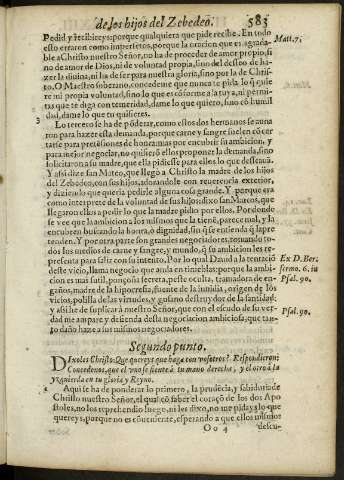 de los hijos del Zebedeo. 583
Pedid y recibireys: porque qualquiera que pide recibe. En todo
esto erraron como imperfetos, porque la oracion que es agrada-
ble a Christo nuestro Señor, no ha de proceder de amor propio, si
no de amor de Dios, ni de voluntad propia, sino del desseo de ha-
zer la diuina, ni ha de ser para nuestra gloria, sino por la de Chris-
to. O Maestro soberano, concedeme que nunca te pida lo q̃ quie
re mi propia voluntad, sino lo que es cõforme a la tuya, ni permi-
tas que te diga con temeridad, dame lo que quiero, sino cõ humil
dad, dame lo que tu quisieres.
Matt. 7.
3 Lo tercero se ha de põderar, como estos dos hermanos se auna
ron para hazer esta demanda, porque carne y sangre suelen cõcer
tarse para pretensiones de honra: mas por encubrir su ambicion, y
para mejor negociar, no quisierõ ellos proponer la demanda, sino
solicitaron a su madre, que ella pidiesse para ellos lo que desseauã.
Y assi dize san Mateo, que llegò a Christo la madre de los hijos
del Zebedeo, con sus hijos, adorandole con reuerencia exterior,
y diziendo que queria pedirle alguna cosa grande. Y porque era
como interprete de la voluntad de sus hijos: dixo san Marcos, que
llegaron ellos a pedir lo que la madre pidio por ellos. Por donde
se vee que la ambicion a los mismos que la tienẽ, parece mal, y la
encubren buscando la honra, ò dignidad, sin q̃ se entienda q̃ la pre
tenden. Y por otra parte son grandes negociadores, tomando to-
dos los medios de carne y sangre, y mundo, q̃ su ambicion les re-
presenta para salir con su intento. Por lo qual Dauid a la tentaciõ
deste vicio, llama negocio que anda en tinieblas: porque la ambi-
cion es mas sutil, ponçoña secreta, peste oculta, tramadora de en-
gaños, madre de la hipocresia, fuente de la inuidia, origen de los
vicios, polilla de las virtudes, y gusano destruydor de la santidad:
y assi he de suplicar a nuestro Señor, que con el escudo de su ver-
dad me ampare y defienda desta negociacion ambiciosa, que tan-
to daño haze a sus mismos negociadores.
Ex D. Ber.
sermo. 6. in
Psal. 90.
Psal. 90.
Segundo punto.
Dixoles Christo: Que quereys que haga con vosotros? Respondieron:
Concedenos, que el vno se siente à tu mano derecha, y el otro à la
yzquierda en tu gloria y Reyno.
Aqui se ha de ponderar lo primero, la prudẽcia y sabiduria de
Christo nuestro Señor, el qual cõ saber el coraçõ de los dos Apo
stoles, no los reprehendio luego, ni les dixo, no me pidays lo que
quereys, porque no es conueniente, esperando a que ellos mismos
Oo 4 descu-